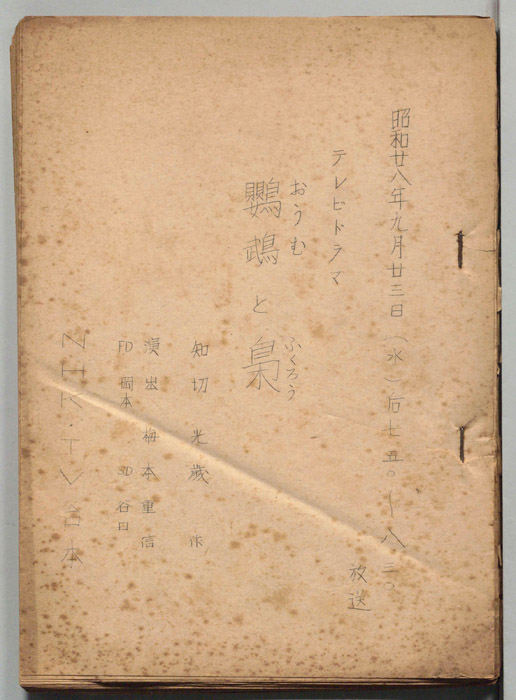 昭和廿八年九月廿三日（水）后七.五〇ー八.三〇
放送
テレビドラマ
おうむ ふくろう
鸚鵡と梟
知切光歳 作
演出 梅本重信
FD 岡本 SD 谷口
NHK・TV台本